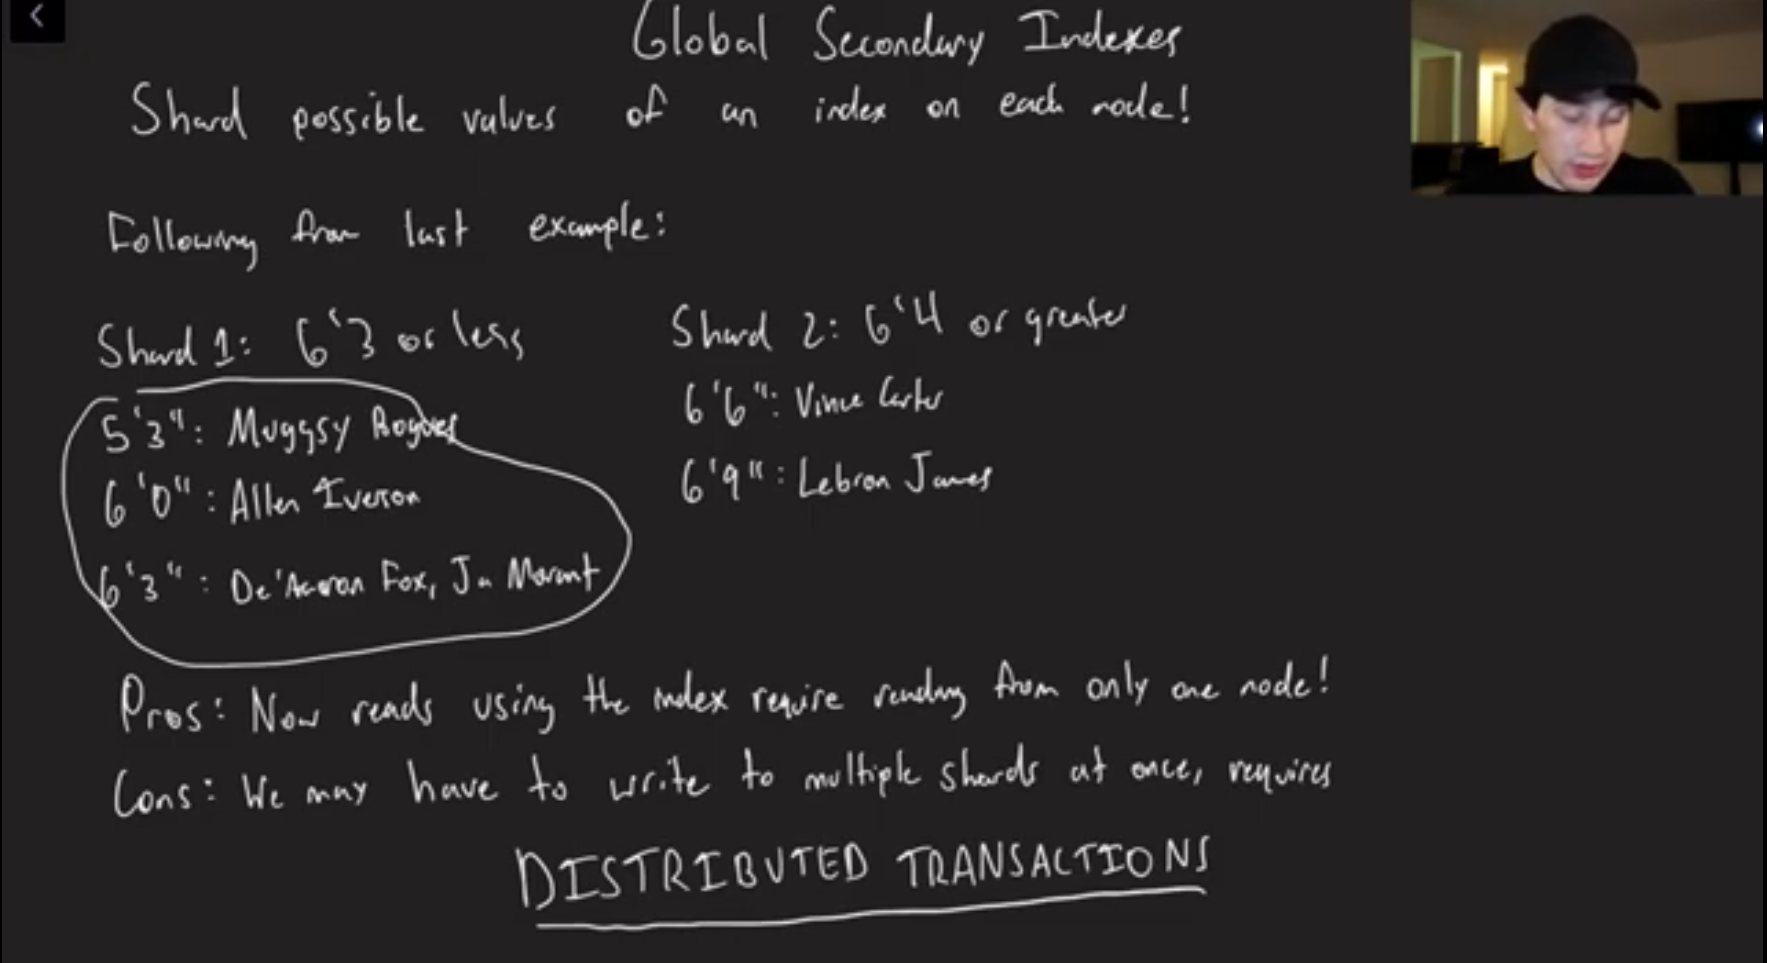 Global Secondary Indexes
Shard possible values of an index on each node!
Following from last example:
Shard 1: 6'3 or less
5'3": Muggsy Bogues
6'0": Allen Iverson
6'3": De'Aaron Fox, Ja Morant
Shard 2: 6'4 or greater
6'6": Vince Carter
6'9": Lebron James
Pros: Now reads using the index require reading from only one node!
Cons: We may have to write to multiple shards at once, requires
DISTRIBUTED TRANSACTIONS